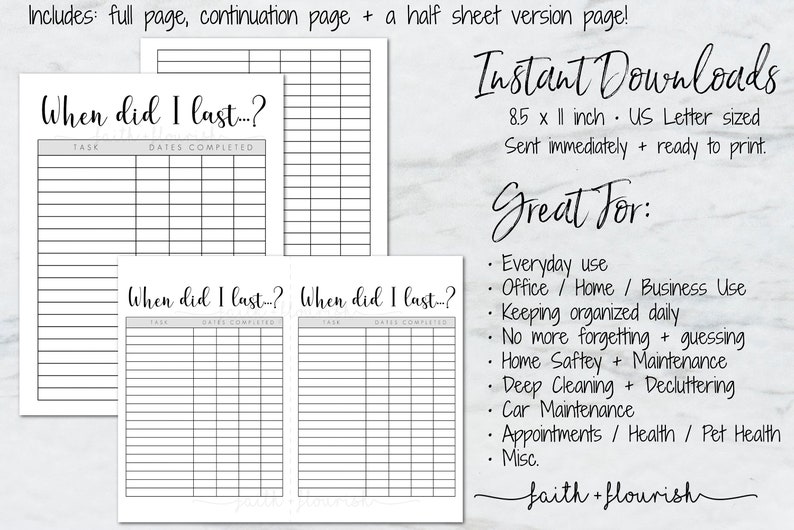 Includes: full page, continuation page + a half sheet version page!
When did I last...?
faith + flourish
TASK DATES COMPLETED
When did I last...? When did I last...?
TASK DATES COMPLETED TASK DATES COMPLETED
faith + flourish
Instant Downloads
8.5 x 11 inch • US Letter sized
Sent immediately + ready to print.
Great For:
• Everyday use
• Office / Home / Business Use
• Keeping organized daily
• No more forgetting + guessing
• Home Saftey + Maintenance
• Deep Cleaning + Decluttering
• Car Maintenance
• Appointments / Health / Pet Health
• Misc.
faith + flourish